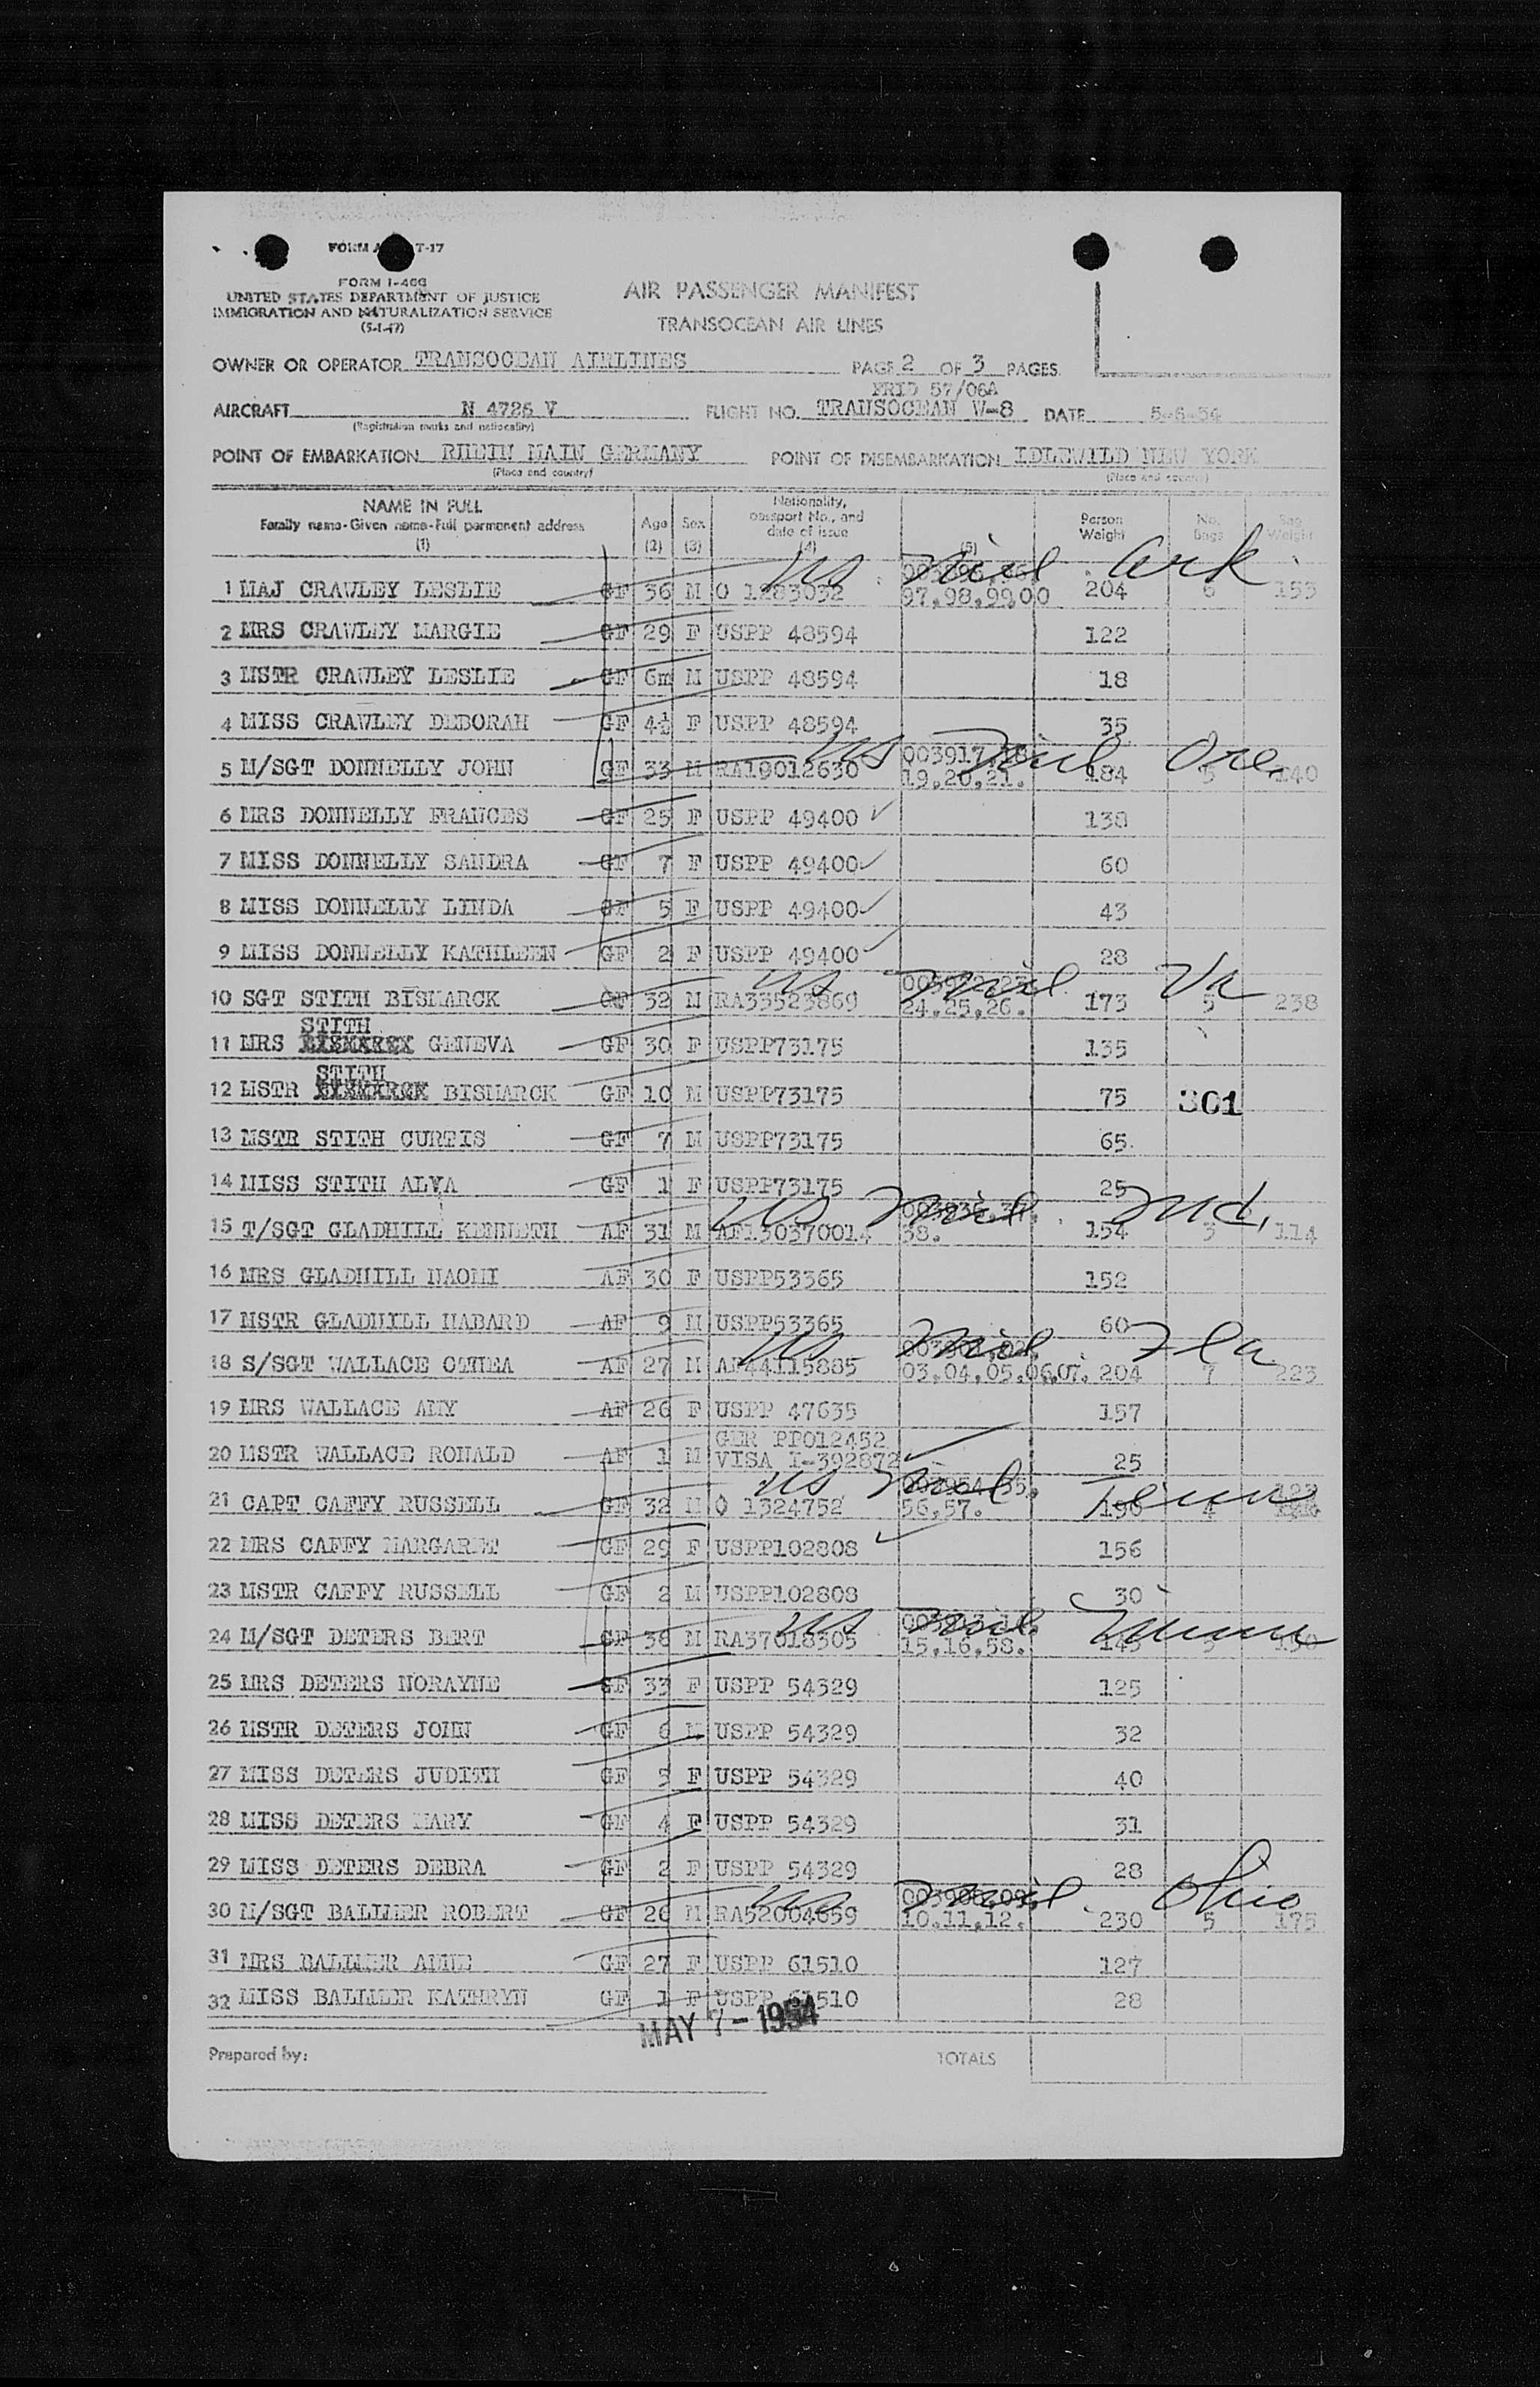 FORM T-17
FORM I-466
UNITED STATES DEPARTMENT OF JUSTICE
IMMIGRATION AND NATURALIZATION SERVICE
(5-1-47)
AIR PASSENGER MANIFEST
TRANSOCEAN AIR LINES
OWNER OR OPERATOR TRANSOCEAN AIRLINES PAGE 2 OF 3 PAGES
FRID 57/06A
AIRCRAFT N 4726 V FLIGHT NO. TRANSOCEAN W-8 DATE 5-6-54
(Registration marks and nationality)
POINT OF EMBARKATION RHEIN MAIN GERMANY POINT OF DISEMBARKATION IDLEWILD NEW YORK
(Place and country) (Place and country)
NAME IN FULL
Family name-Given name-Full permanent address
(1)
Age (2) Sex (3) Nationality, passport No., and date of issue (4) (5) Person Weight No. Bags Bag Weight
us mil Ark
1 MAJ CRAWLEY LESLIE GF 36 M O 1283032 97,98,99,00 204 6 153
2 MRS CRAWLEY MARGIE GF 29 F USPP 48594 122
3 MSTR CRAWLEY LESLIE GF 6m M USPP 48594 18
4 MISS CRAWLEY DEBORAH GF 4½ F USPP 48594 35
us mil Ore
5 M/SGT DONNELLY JOHN GF 33 M RA19012630 003917,18, 19,20,21. 184 5 140
6 MRS DONNELLY FRANCES GF 25 F USPP 49400 138
7 MISS DONNELLY SANDRA GF 7 F USPP 49400 60
8 MISS DONNELLY LINDA GF 5 F USPP 49400 43
9 MISS DONNELLY KATHLEEN GF 2 F USPP 49400 28
us mil Va
10 SGT STITH BISMARCK GF 32 M RA33523869 24,25,26. 173 5 238
STITH
11 MRS GENEVA GF 30 F USPP73175 135
STITH
12 MSTR BISMARCK GF 10 M USPP73175 75 301
13 MSTR STITH CURTIS GF 7 M USPP73175 65
14 MISS STITH ALVA GF 1 F USPP73175 25
us mil Md.
15 T/SGT GLADHILL KENNETH AF 31 M AF130370014 003936,37, 38. 154 3 114
16 MRS GLADHILL NAOMI AF 30 F USPP53365 152
17 MSTR GLADHILL HABARD AF 9 M USPP53365 60
us mil Fla
18 S/SGT WALLACE AF 27 M AF44115885 03,04,05,06,07. 204 7 223
19 MRS WALLACE AMY AF 26 F USPP 47635 157
GER PP012452
20 MSTR WALLACE RONALD AF 1 M VISA I-392872 25
us mil Tenn
21 CAPT CAFFY RUSSELL GF 32 M O 1324752 56,57. 196 4 123
22 MRS CAFFY MARGARET GF 29 F USPP102808 156
23 MSTR CAFFY RUSSELL GF 2 M USPP102808 30
us mil Minn
24 M/SGT DETERS BERT GF 38 M RA37018305 15,16,58. 145 5 150
25 MRS DETERS NORAYNE GF 33 F USPP 54329 125
26 MSTR DETERS JOHN GF 6 M USPP 54329 32
27 MISS DETERS JUDITH GF 5 F USPP 54329 40
28 MISS DETERS MARY GF 4 F USPP 54329 31
29 MISS DETERS DEBRA GF 2 F USPP 54329 28
us mil Ohio
30 M/SGT BALLMER ROBERT GF 26 M RA52004659 003908,09, 10,11,12. 230 5 175
31 MRS BALLMER ANNE GF 27 F USPP 61510 127
32 MISS BALLMER KATHRYN GF 1 F USPP 61510 28
MAY 7-1954
Prepared by: TOTALS